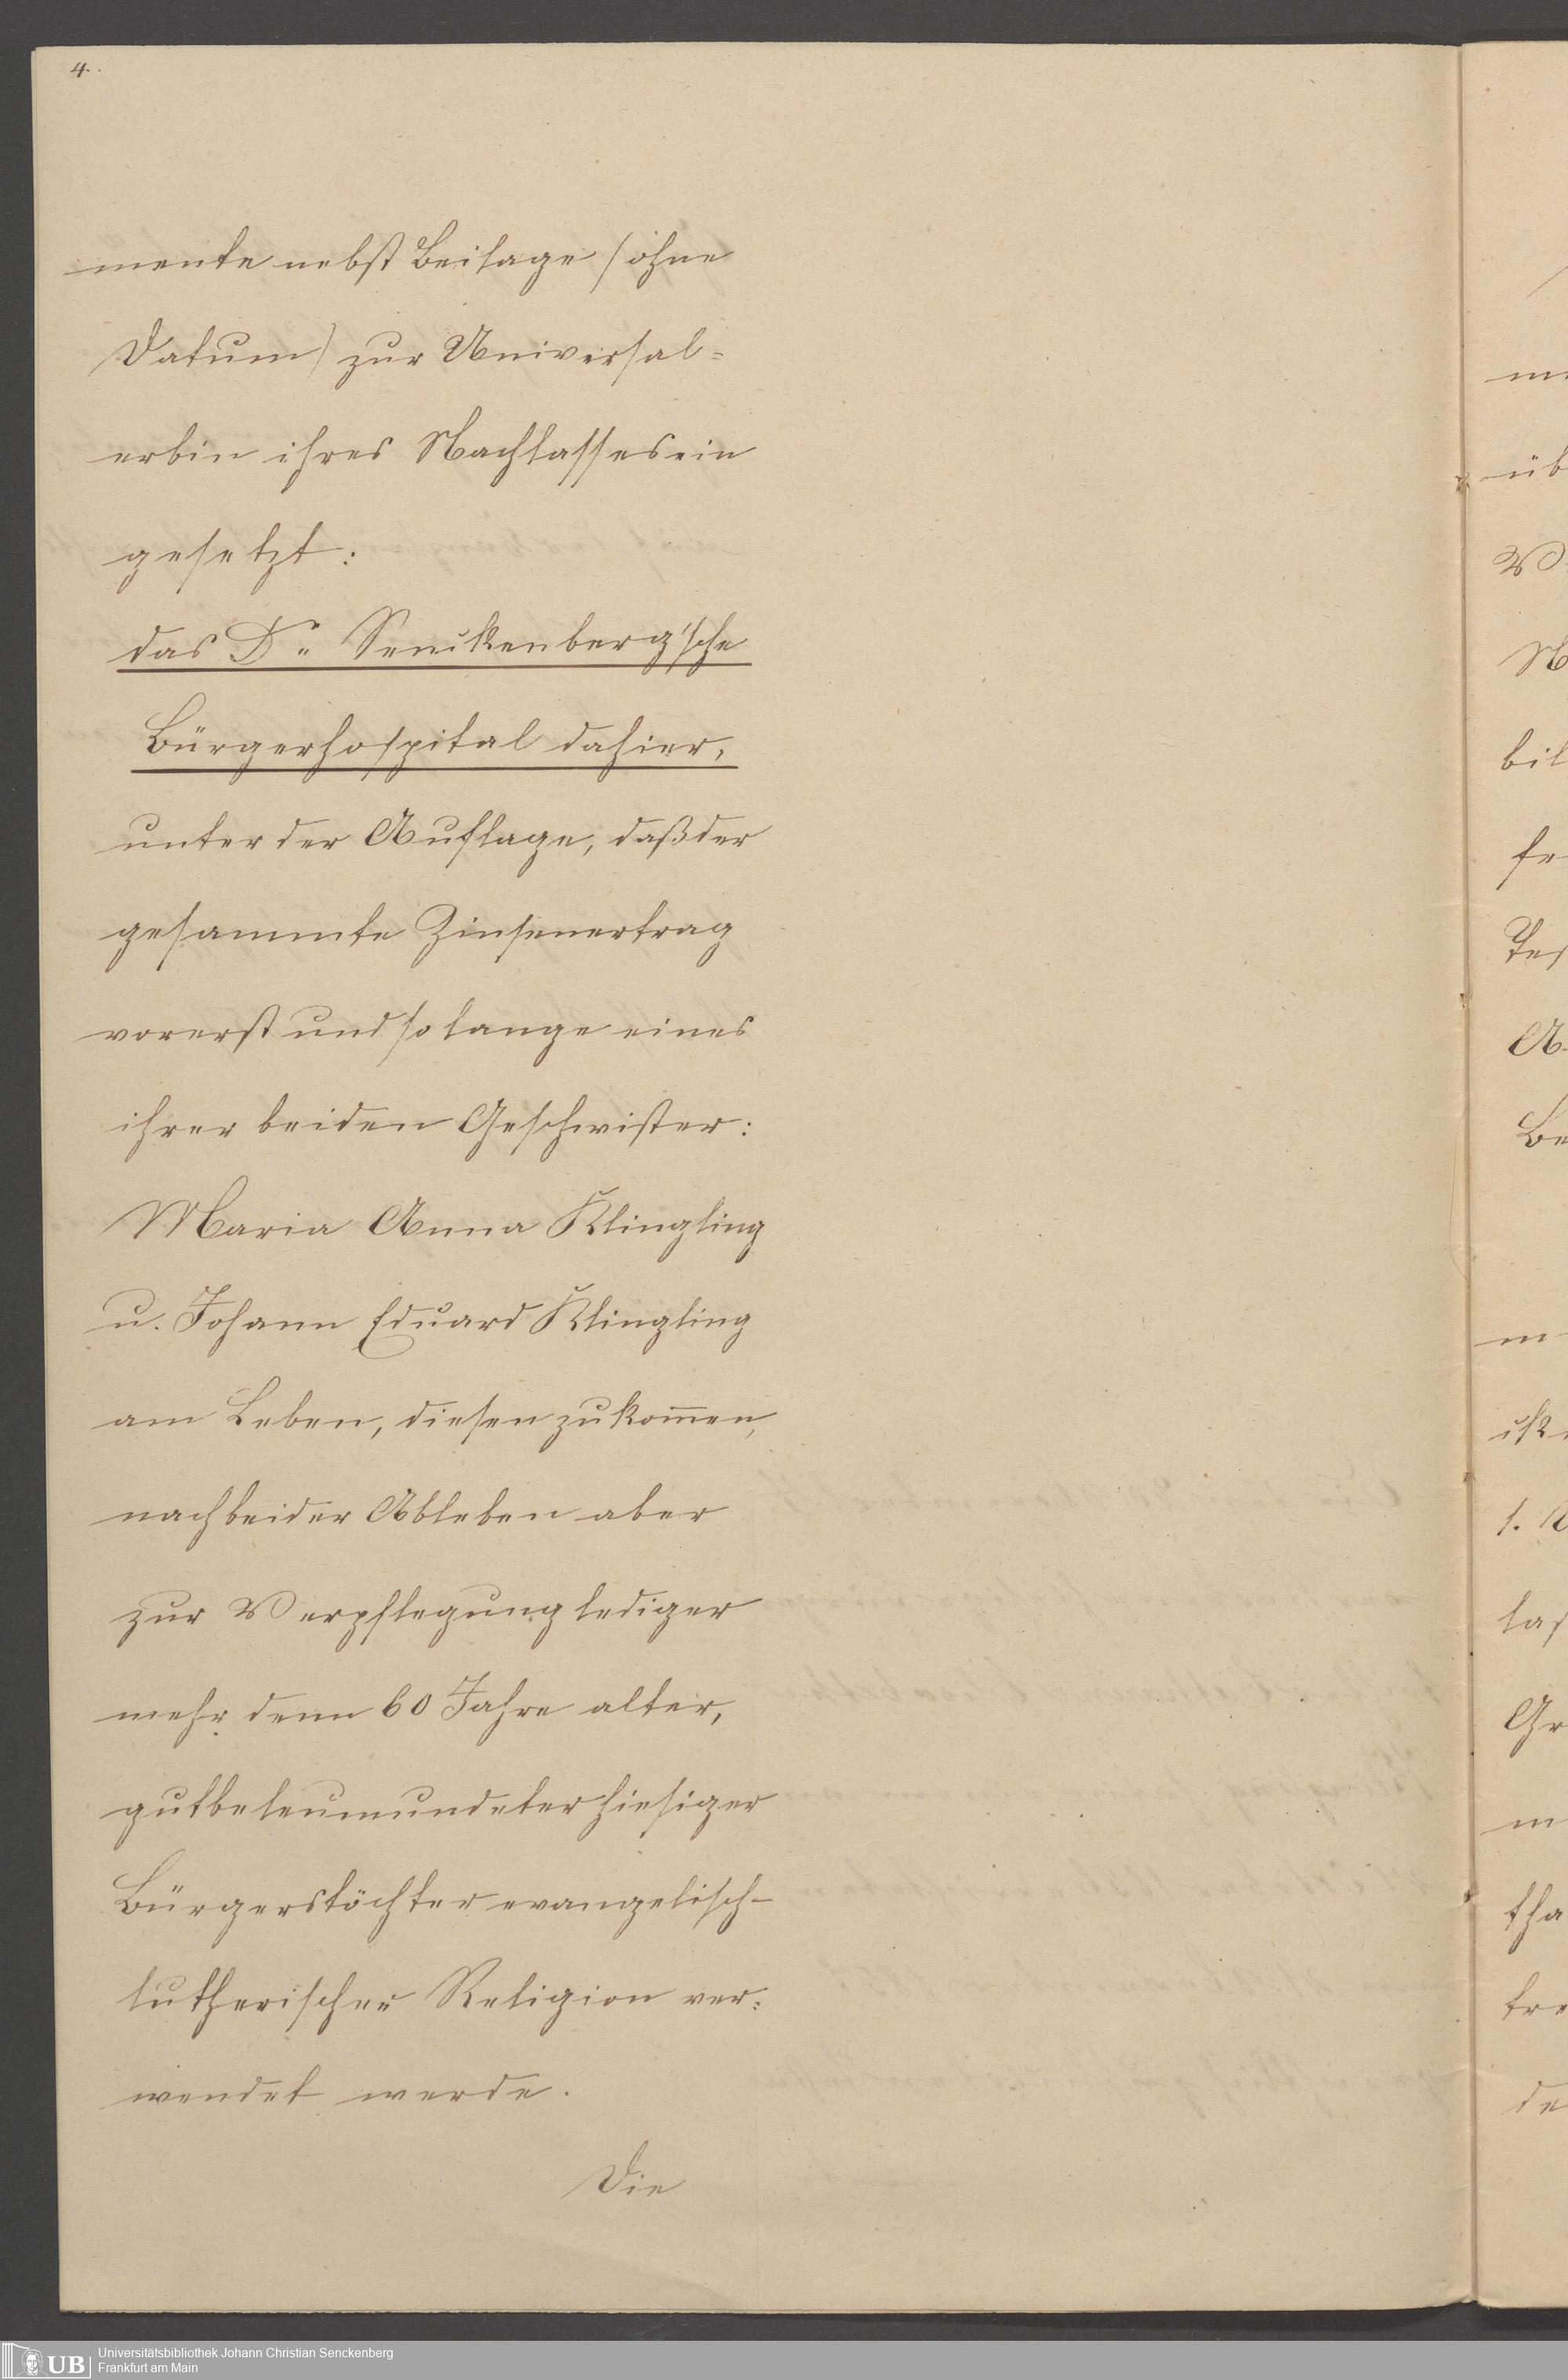 4.
mente nebst Beilage (ohne
Datum) zur Universal=
erbin ihres Nachlasses ein
gesetzt:
das Dr. Senckenberg'sche
Bürgerhospital dahier,
unter der Auflage, daß der
gesammte Zinsenertrag
vorerst und so lange eines
ihrer beiden Geschwister:
Maria Anna Klingling
u. Johann Eduard Klingling
am Leben, diesen zukom̄en,
nach beider Ableben aber
zur Verpflegung lediger
mehr denn 60 Jahre alter,
gutbeleumundeter hiesiger
Bürgerstöchter evangelisch-
lutherischer Religion ver=
wendet werde.
Die
üb
bil
fe
Tes
Be
1.
las
Gr
tha
tre
de
UB
Universitätsbibliothek Johann Christian Senckenberg
Frankfurt am Main